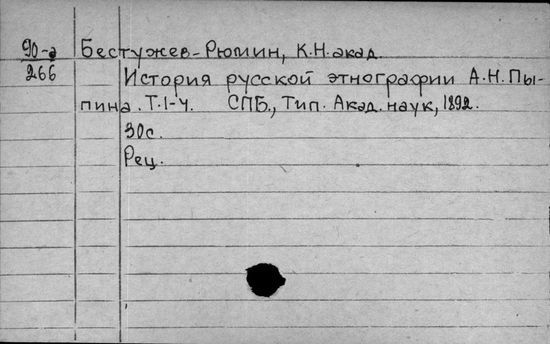 90-а Бестужев-Рюмин, К.Н. акад.
266
История русской этнографии А.Н. Пы-
пина. Т. 1-4. СПБ., Тип. Акад. наук, 1892.
30с.
Рец.